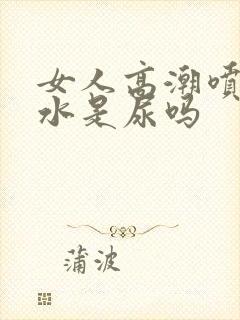 女人高潮喷
水是尿吗
蒲波